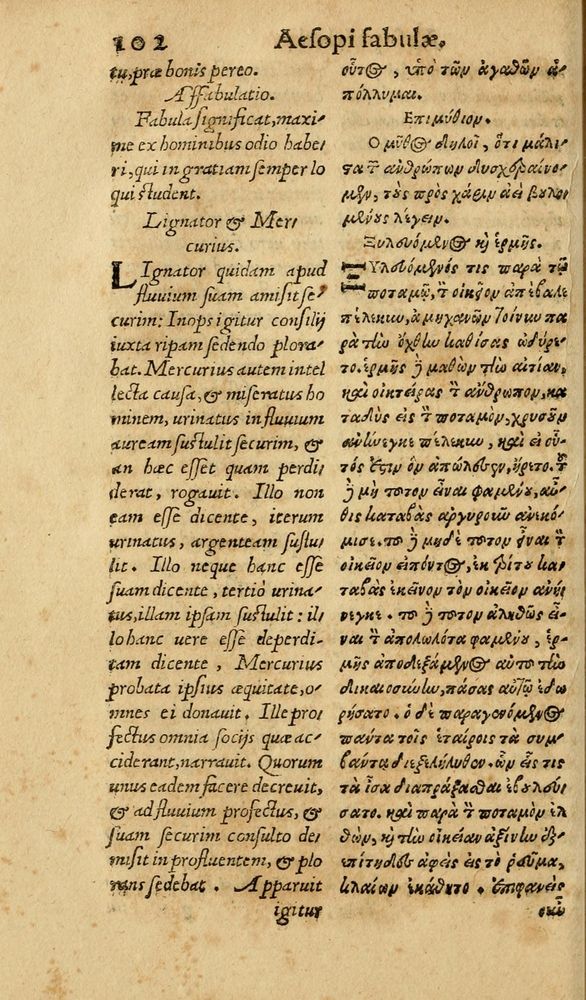 102 Aesopi fabulæ.
tu, præ bonis pereo.
Affabulatio.
Fabula significat, maxi/
me ex hominibus odio habe/
ri, qui in gratiam semper lo
qui student.
Lignator & Mer/
curius.
LIgnator quidam apud
fluuium suam amisit se/
curim: Inops igitur consilij
iuxta ripam sedendo plora/
bat. Mercurius autem intel
lecta causa, & miseratus ho
minem, urinatus in fluuium
auream sustulit securim, &
an hæc esset quam perdi/
derat, rogauit. Illo non
eam esse dicente, iterum
urinatus, argenteam sustu/
lit. Illo neque hanc esse
suam dicente, tertiò urina/
tus, illam ipsam sustulit: il/
lo hanc uere esse deperdi/
tam dicente, Mercurius
probata ipsius æquitate, o/
mnes ei donauit. Ille pro/
fectus omnia socijs quæ ac/
ciderant, narrauit. Quorum
unus eadem facere decreuit,
& ad fluuium profectus, &
suam securim consulto de/
misit in profluentem, & plo
rans sedebat. Apparuit
igitur
οὗτος, ὑπὸ τῶν ἀγαθῶν ἀ-
πόλλυμαι.
Ἐπιμύθιον.
Ο μῦθος δηλοῖ, ὅτι μάλι-
στα τ ἀνθρώπων δυσχεραίνο-
μεν, τοὺς πρὸς χάριν ἀεὶ βουλο
μένους λέγειν.
Ξυλευόμενος κὴ ἑρμῆς.
ΞΥλευόμενός τις παρὰ τῷ
ποταμῷ, τ οἰκεῖον ἀπέβαλε
πέλεκυν, ἀμηχανῶν τοίνυν πα
ρὰ τὴν ὄχθην καθίσας ὠδύρε-
το. ἑρμῆς ἢ μαθὼν τὴν αἰτίαν,
καὶ οἰκτείρας τ ἄνθρωπον, κα
ταδὺς εἰς τ ποταμὸν, χρυσοῦν
ἀνήνεγκε πέλεκυν, καὶ εἰ οὗ-
τός ἐστιν ὃν ἀπώλεσεν, ἤρετο. τ
ἢ μὴ τοῦτον εἶναι φαμένου, αὖ-
θις καταβὰς ἀργυροῦν ἀνεκό-
μισε. τοῦ ἢ μηδὲ τοῦτον εἶναι τ
οἰκεῖον εἰπόντος, ἐκ τρίτου κα-
ταβὰς ἐκεῖνον τὸν οἰκεῖον ἀνή-
νεγκε. τοῦ ἢ τοῦτον ἀληθῶς εἶ-
ναι τ ἀπολωλότα φαμένου, ἑρ-
μῆς ἀποδεξάμενος αὐτοῦ τὴν
δικαιοσύνην, πάσας αὐτῷ ἐδω
ρήσατο. ὁ δὲ παραγενόμενος
πάντα τοῖς ἑταίροις τὰ συμ-
βάντα διεξελήλυθεν. ὧν εἷς τις
τὰ ἶσα διαπράξασθαι ἐβουλεύ-
σατο. καὶ παρὰ τ ποταμὸν ἐλ
θὼν, κὴ τὴν οἰκείαν ἀξίνην ἐξ-
επίτηδες ἀφεὶς εἰς τὸ ῥεῦμα,
κλαίων ἐκάθητο. ἐπιφανεὶς
οὖν